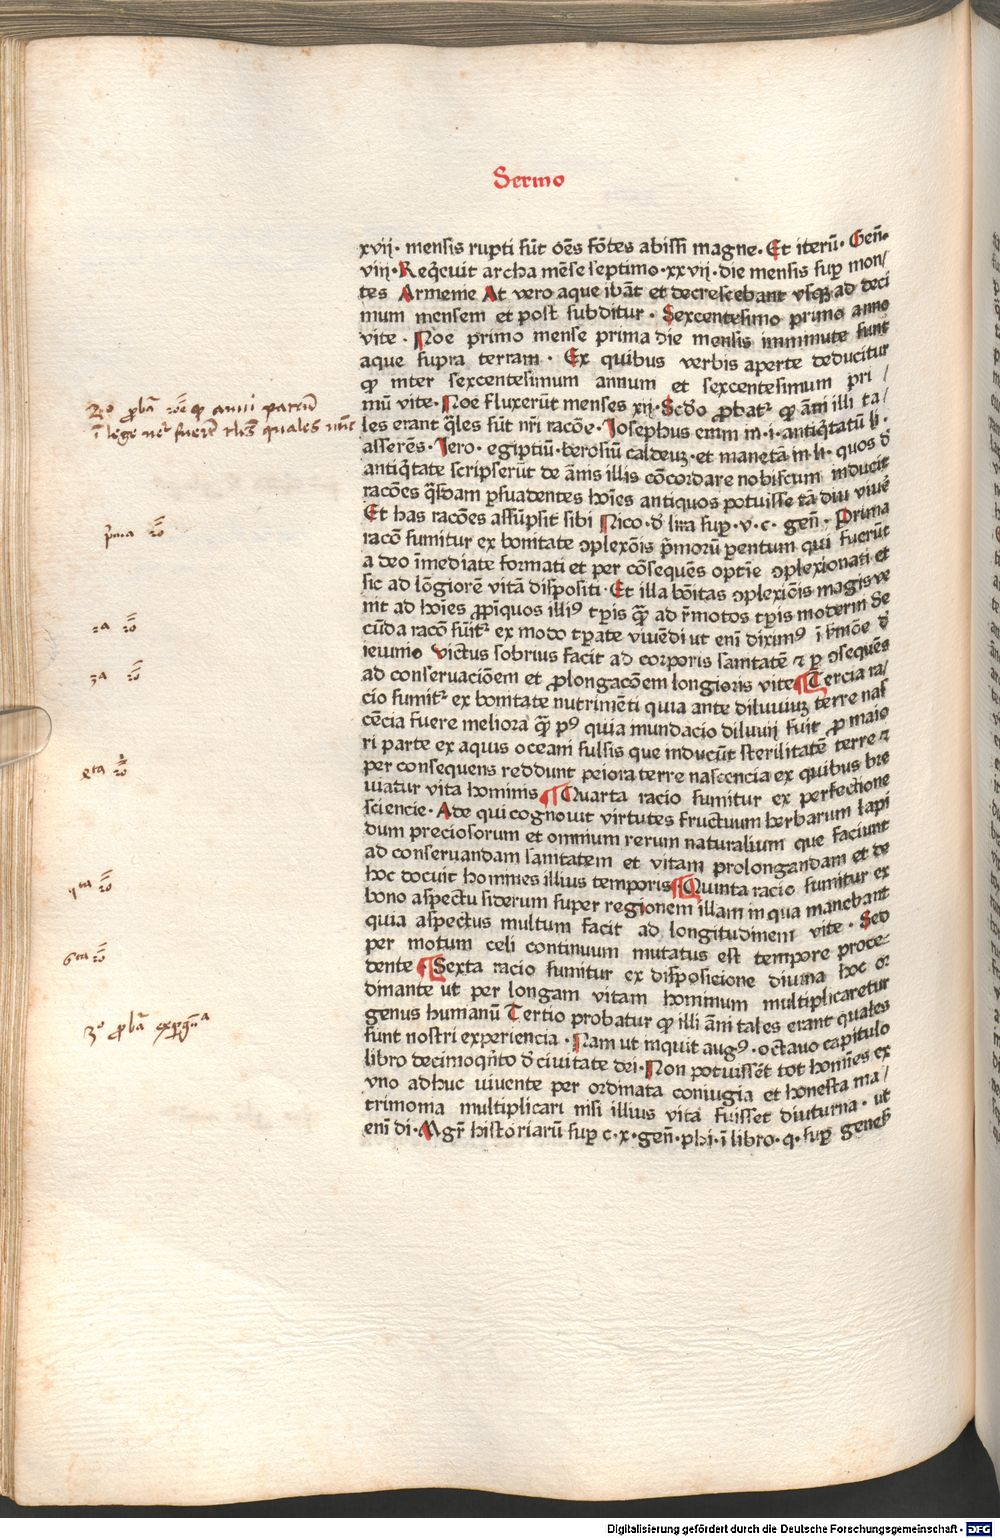 Sermo
xvij· mensis rupti sūt oēs fōtes abissi magne· Et iterū· Geñ·
viij· Reqͥeuit archa mēse septimo· xxvij· die mensis suꝑ mon/
tes Armenie At vero aque ibāt et decrescebant vsqꝫ ad deci
mum mensem et post subditur · Sexcentesimo primo anno
vite · Noe primo mense prima die mensis imminute sunt
aque supra terram · Ex quibus verbis aperte deducitur
ꝙ inter sexcentesimum annum et sexcentesimum pri /
mū vite· Noe fluxerūt menses xij· Scd̄o ꝓbatᷣ ꝙ āni illi ta/
les erant q̄les sūt nr̄i racōe· Josephus enim in·i·antiqͥtatū li·
asserēs· Jero· egiptiū· berosiū caldeuꝫ· et manetā in li· quos d̄
antiqͥtate scripserūt de ānis illis cōcordare nobiscum inducit
racōes q̄sdam ꝑsuadentes hoīes antiquos potuisse tā diu viuē
Et has racōes assūpsit sibi Nico· d̄ lira suꝑ·v·c· geñ· Prima
racō sumitur ex bonitate ꝯplexōis pͥmorū parentum qui fuerūt
a deo īmediate formati et per cōsequēs optīe ꝯplexionati et
sic ad lōgiorē vitā dispositi· Et illa bōitas ꝯplexiōis magis ve
nit ad hoīes ꝓpīquos illiꝰ tꝑis qᷓꝫ ad rͤmotos tꝑis moderni Se
cūda racō sūitᷣ ex modo tꝑate viuēdi ut enī diximꝰ ī sͬmōe d̄
ieiunio victus sobrius facit ad corporis sanitatē ⁊ ꝑ ꝯsequēs
ad conseruaciōem et ꝓlongacōem longioris vite ¶Tercia ra/
cio sumitᷣ ex bonitate nutrimēti quia ante diluuiuꝫ terre nas
cēcia fuere meliora qᷓꝫ pꝰ quia inundacio diluuij fuit ꝓ maio
ri parte ex aquis oceani fulsis que inducūt sterilitatē terre ⁊
per consequens reddunt peiora terre nascencia ex quibus bre
uiatur vita hominis ¶Quarta racio sumitur ex perfectione
sciencie· Ade qui cognouit virtutes fructuum herbarum lapi
dum preciosorum et omnium rerum naturalium que faciunt
ad conseruandam sanitatem et vitam prolongandam et de
hoc docuit homines illius temporis ¶Quinta racio sumitur ex
bono aspectu siderum super regionem illam in qua manebant
quia aspectus multum facit ad longitudinem vite · Sed
per motum celi continuum mutatus est tempore proce-
dente ¶Sexta racio sumitur ex disposicione diuina hoc or
dinante ut per longam vitam hominum multiplicaretur
genus humanū Tertio probatur ꝙ illi āni tales erant quales
sunt nostri experiencia · Nam ut inquit augꝰ· octauo capitulo
libro decimoqͥnto d̄ ciuitate dei· Non potuissēt tot homines ex
vno adhuc viuente per ordinata coniugia et honesta ma/
trimonia multiplicari nisi illius vita fuisset diuturna· ut
enī di· Mgr̄ historiarū suꝑ c·x·geñ·phi·ī libro·q·suꝑ genes̄
2° ꝓbāt rōe ꝙ anni patrū
ī lege nature fuerūt tales quales nūc
prima rō
2a rō
3a rō
4ta rō
5ta rō
6ta rō
3° ꝓbāt
Digitalisierung gefördert durch die Deutsche Forschungsgemeinschaft - DFG